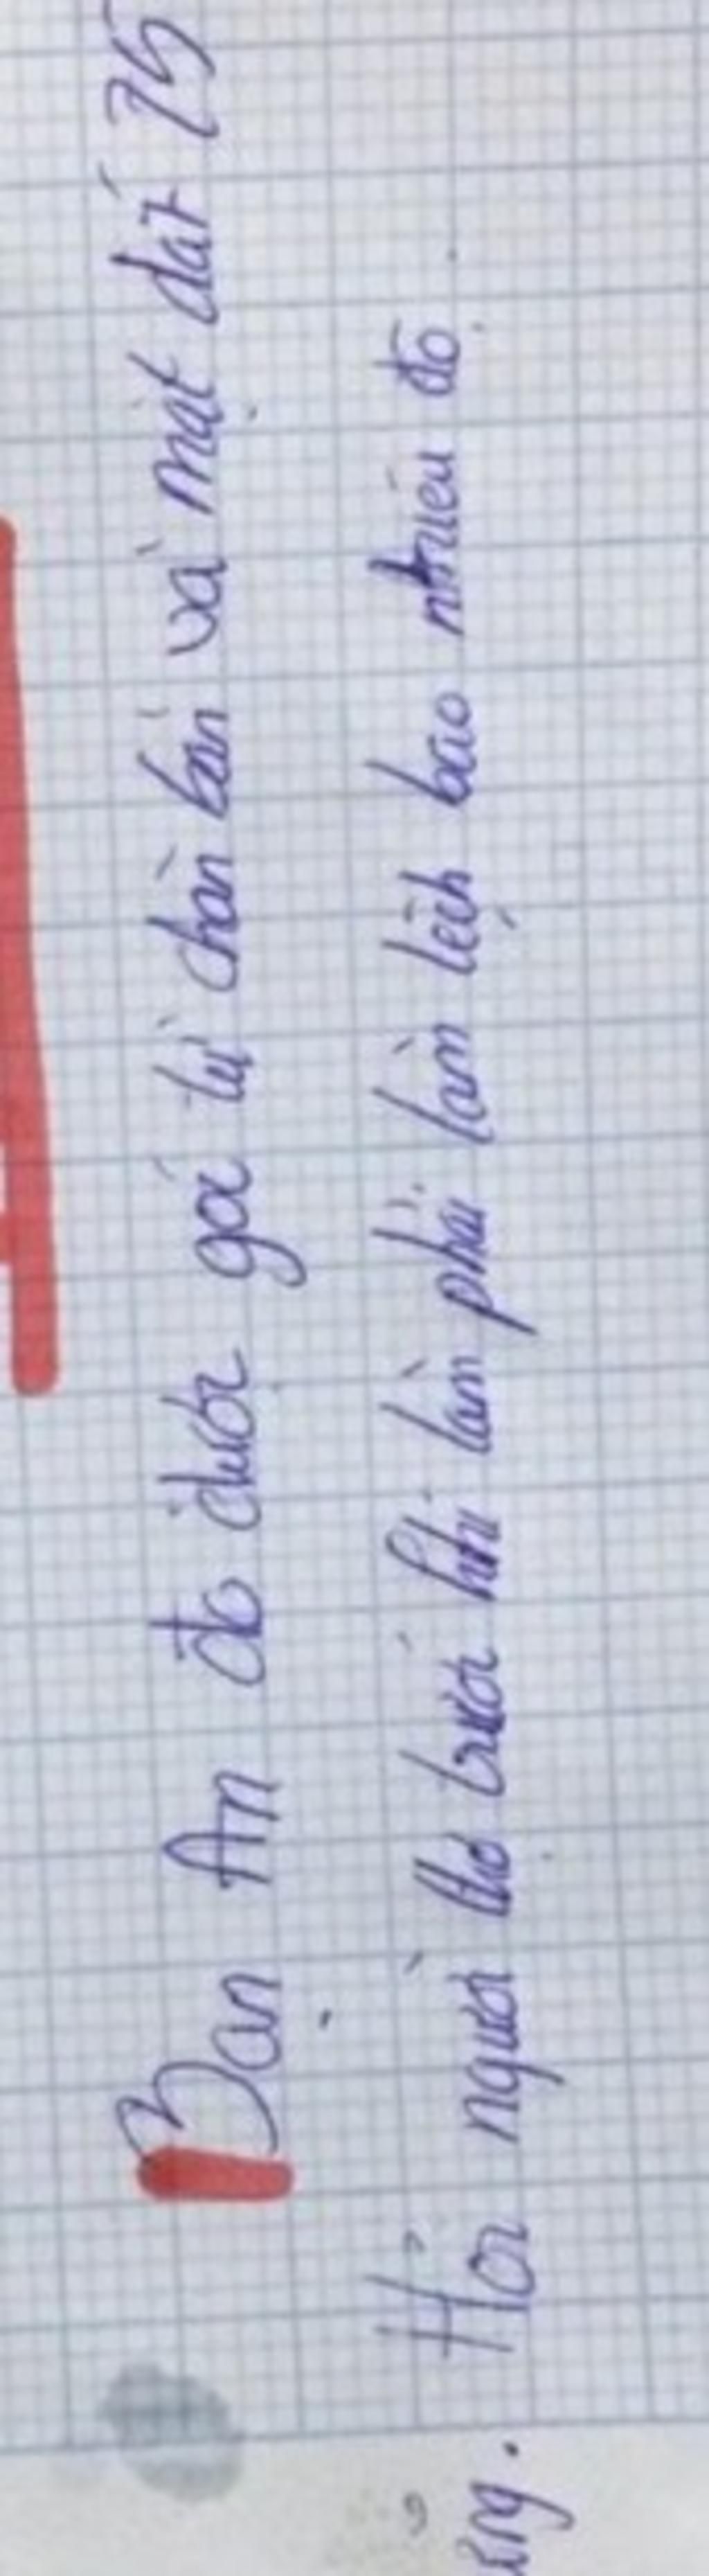 Bạn An đo được góc từ chân bàn và mặt đất 75
ẳng. Hỏi người thợ trước khi làm phải làm lệch bao nhiêu độ.